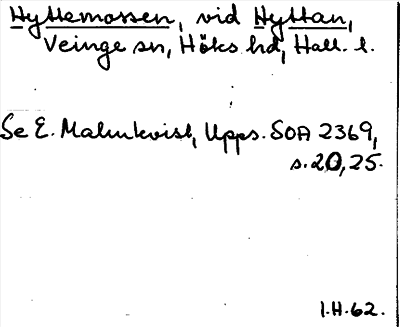 Hyttemossen, vid Hyttan,
Veinge sn, Höks hd, Hall. l.
Se E. Malmkvist, Upps. SOA 2369,
s. 20, 25.
I.H. 62.